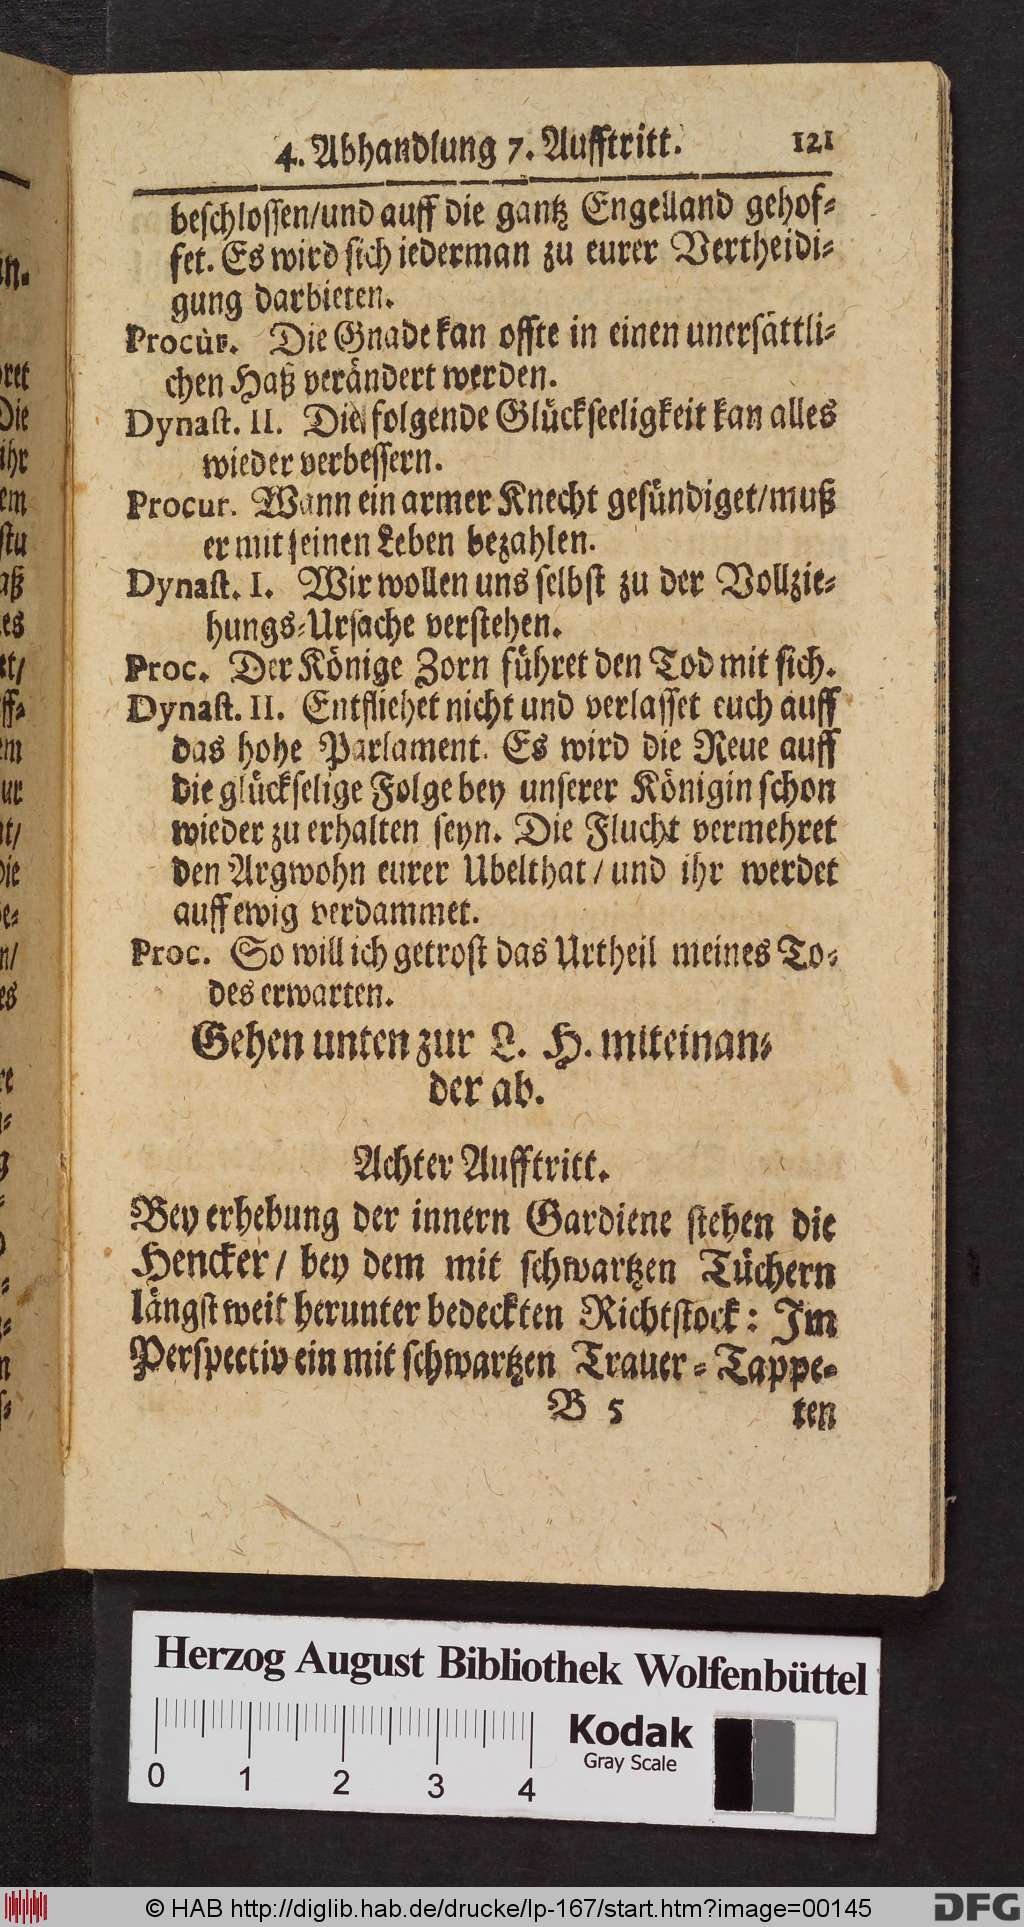 4. Abhandlung 7. Aufftritt. 121
beschlossen/und auff die gantz Engelland gehof-
fet. Es wird sich iederman zu eurer Vertheidi-
gung darbieten.
Procur. Die Gnade kan offte in einen unersättli-
chen Haß verändert werden.
Dynast. II. Die folgende Glückseeligkeit kan alles
wieder verbessern.
Procur. Wann ein armer Knecht gesündiget/muß
er mit seinen Leben bezahlen.
Dynast. I. Wir wollen uns selbst zu der Vollzie-
hungs-Ursache verstehen.
Proc. Der Könige Zorn führet den Tod mit sich.
Dynast. II. Entfliehet nicht und verlasset euch auff
das hohe Parlament. Es wird die Reue auff
die glückselige Folge bey unserer Königin schon
wieder zu erhalten seyn. Die Flucht vermehret
den Argwohn eurer Ubelthat / und ihr werdet
auff ewig verdammet.
Proc. So will ich getrost das Urtheil meines To-
des erwarten.
Gehen unten zur L. H. miteinan-
der ab.
Achter Aufftritt.
Bey erhebung der innern Gardiene stehen die
Hencker / bey dem mit schwartzen Tüchern
längst weit herunter bedeckten Richtstock: Im
Perspectiv ein mit schwartzen Trauer-Tappe-
B 5 ten
Herzog August Bibliothek Wolfenbüttel
0 1 2 3 4
Kodak
Gray Scale
© HAB http://diglib.hab.de/drucke/lp-167/start.htm?image=00145
DFG